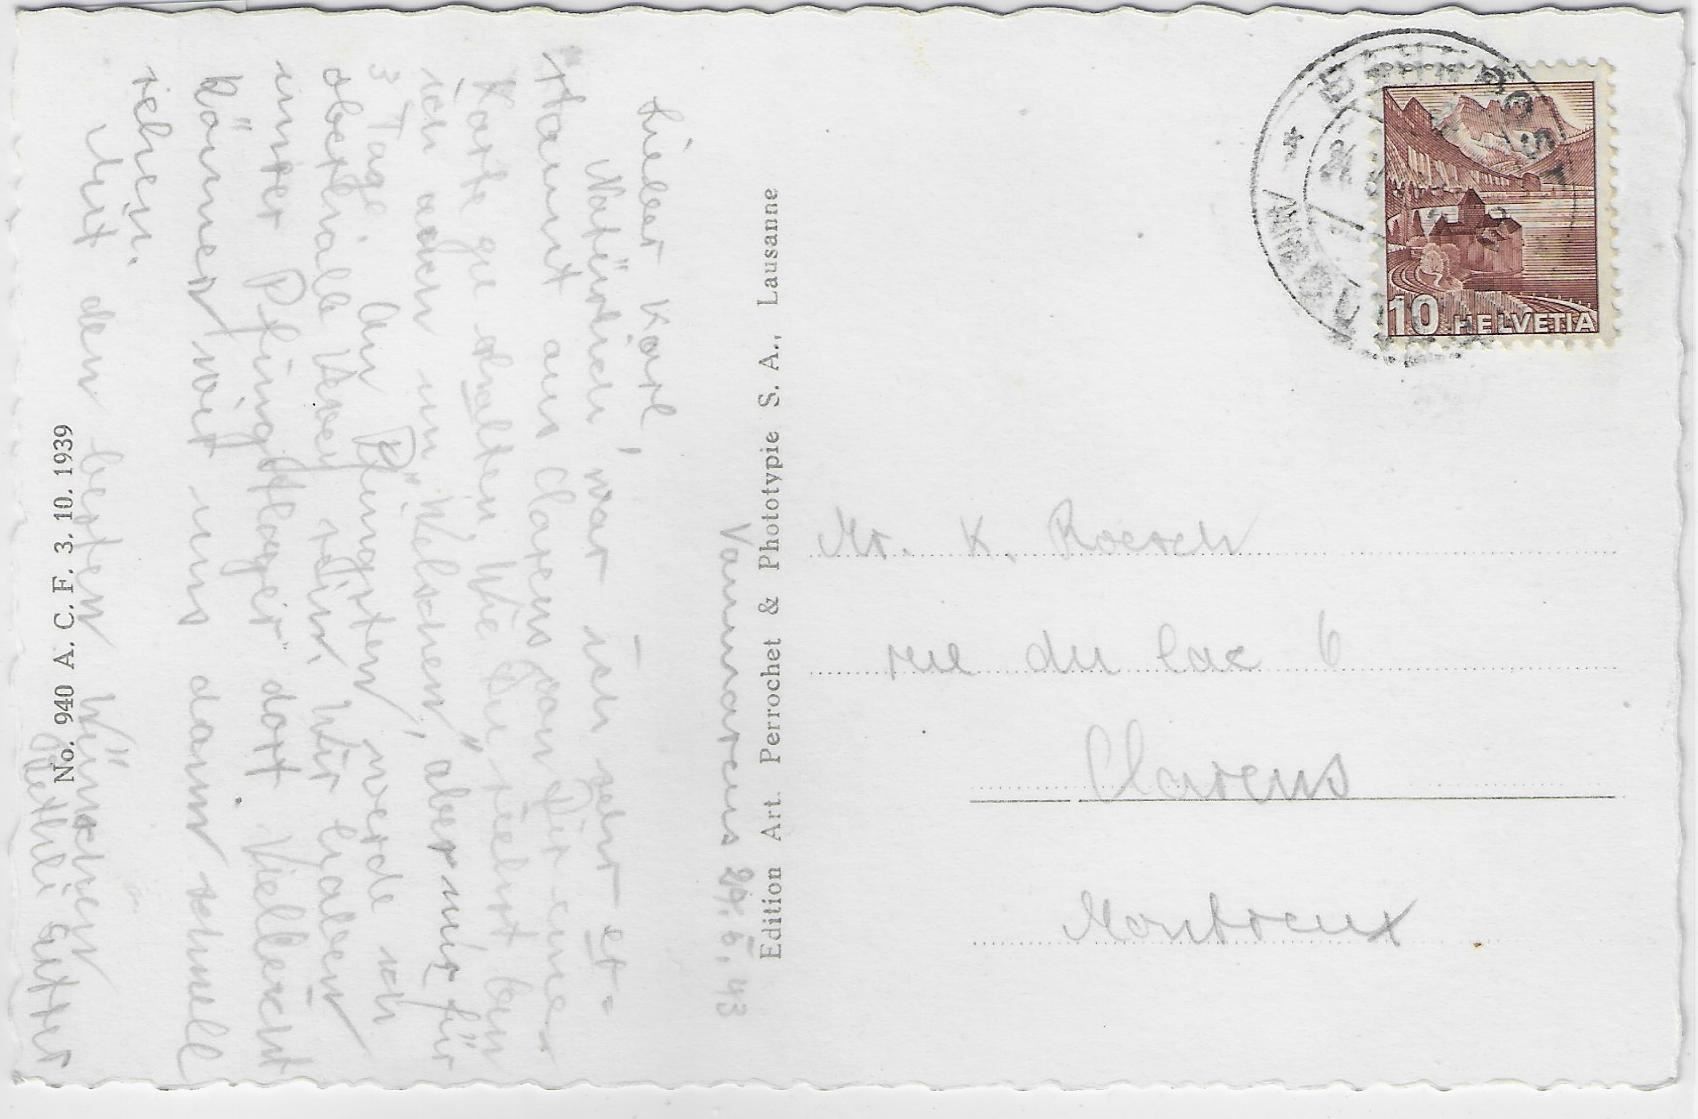 Vaumarcus 29. 5. 43
Lieber Karl,
Natürlich war ich sehr er-
staunt aus Clarens von Dir eine
Karte zu erhalten. Wie Du siehst bin
ich auch im "Welschen", aber nur für
3 Tage. An Pfingsten werde ich
oberhalb Vevey sein. Wir haben
unser "Pfingstlager" dort. Vielleicht
können wir uns dann schnell
sehen.
Mit den besten Wünschen
Suter
No. 940 A. C. F. 3. 10. 1939
Edition Art. Perrochet & Phototypie S. A., Lausanne
Mr. K. Roesch
rue du lac 6
Clarens
Montreux
BAHNPOST
AMBULANT
10 HELVETIA